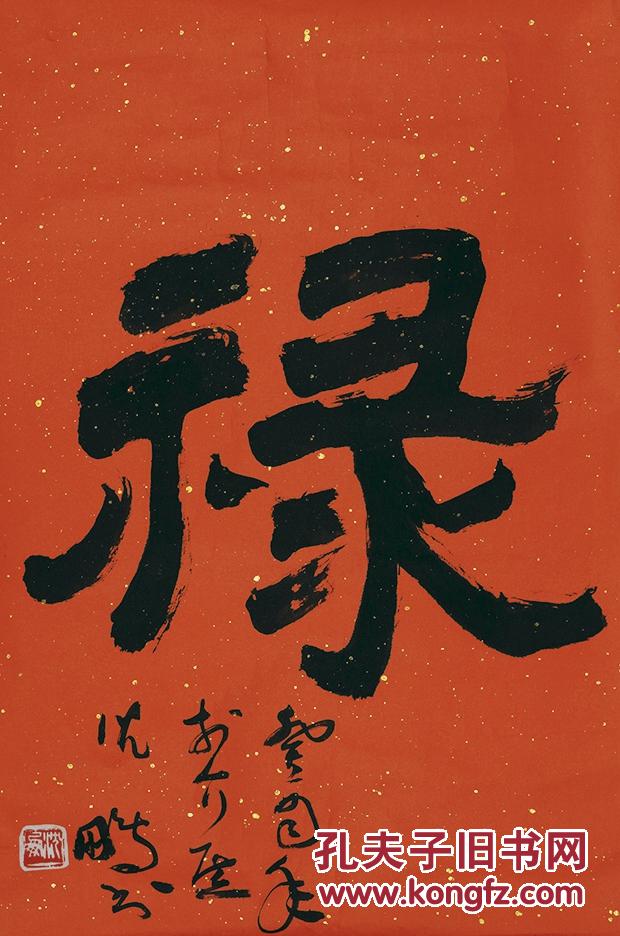 禄
癸酉年
于介居
沈鹏书
孔夫子旧书网
www.kongfz.com